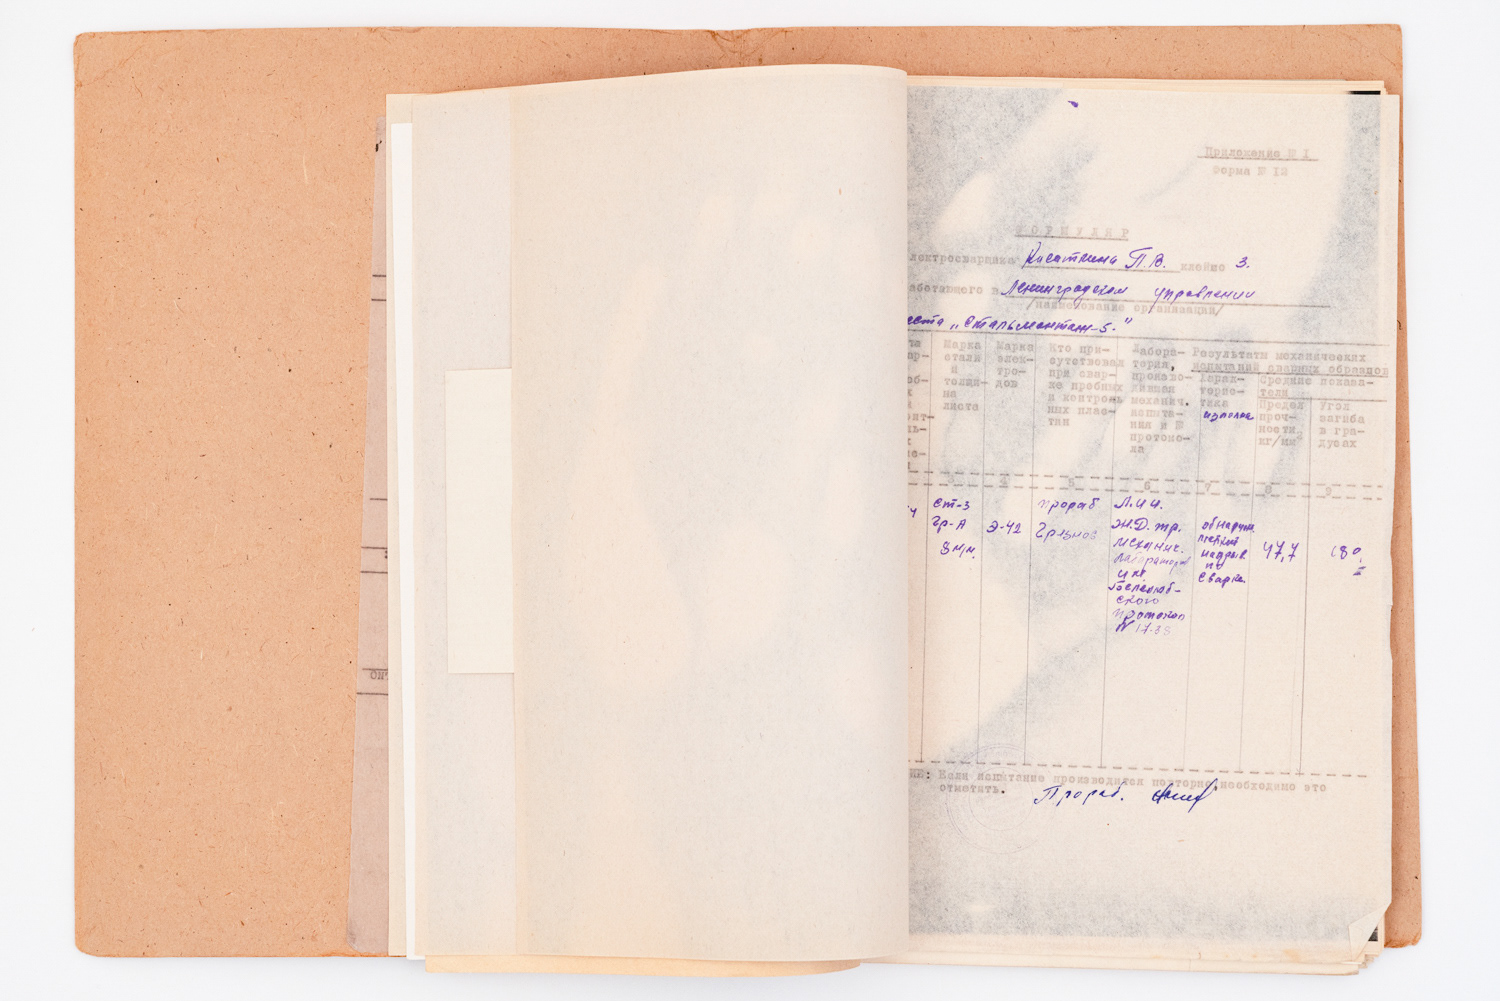 Приложение № I
Форма № I2
ФОРМУЛЯР
лектросварщика Кисаткина П.В. клеймо 3.
аботающего в Ленинградском управлении
/наименование организации/
еста „Стальмонтаж-5."
Марка стали и толщи- на листа
Марка элек- тро- дов
Кто при- сутствовал при свар- ке пробных и контроль ных плас- тин
Лабора- тория, произво- дившая механич. испыта- ния и № протоко- ла
Результаты механических испытаний сварных образцов
Харак- терис- тика излома
Средние показа- тели
Предел проч- ности кг/мм²
Угол загиба в гра- дусах
3 4 5 6 7 8 9
Ст-3
гр-А
8 м/м.
Э-42
прораб
Грезнов
Л.И.И.
Ж.Д. тр.
механич.
лаборатория
протокол
№ 17-38
обнаруж.
мелкий
надрыв
по
сварке.
47,7
180
ИЕ: Если испытание производится повторно, необходимо это
отметить.
Прораб.